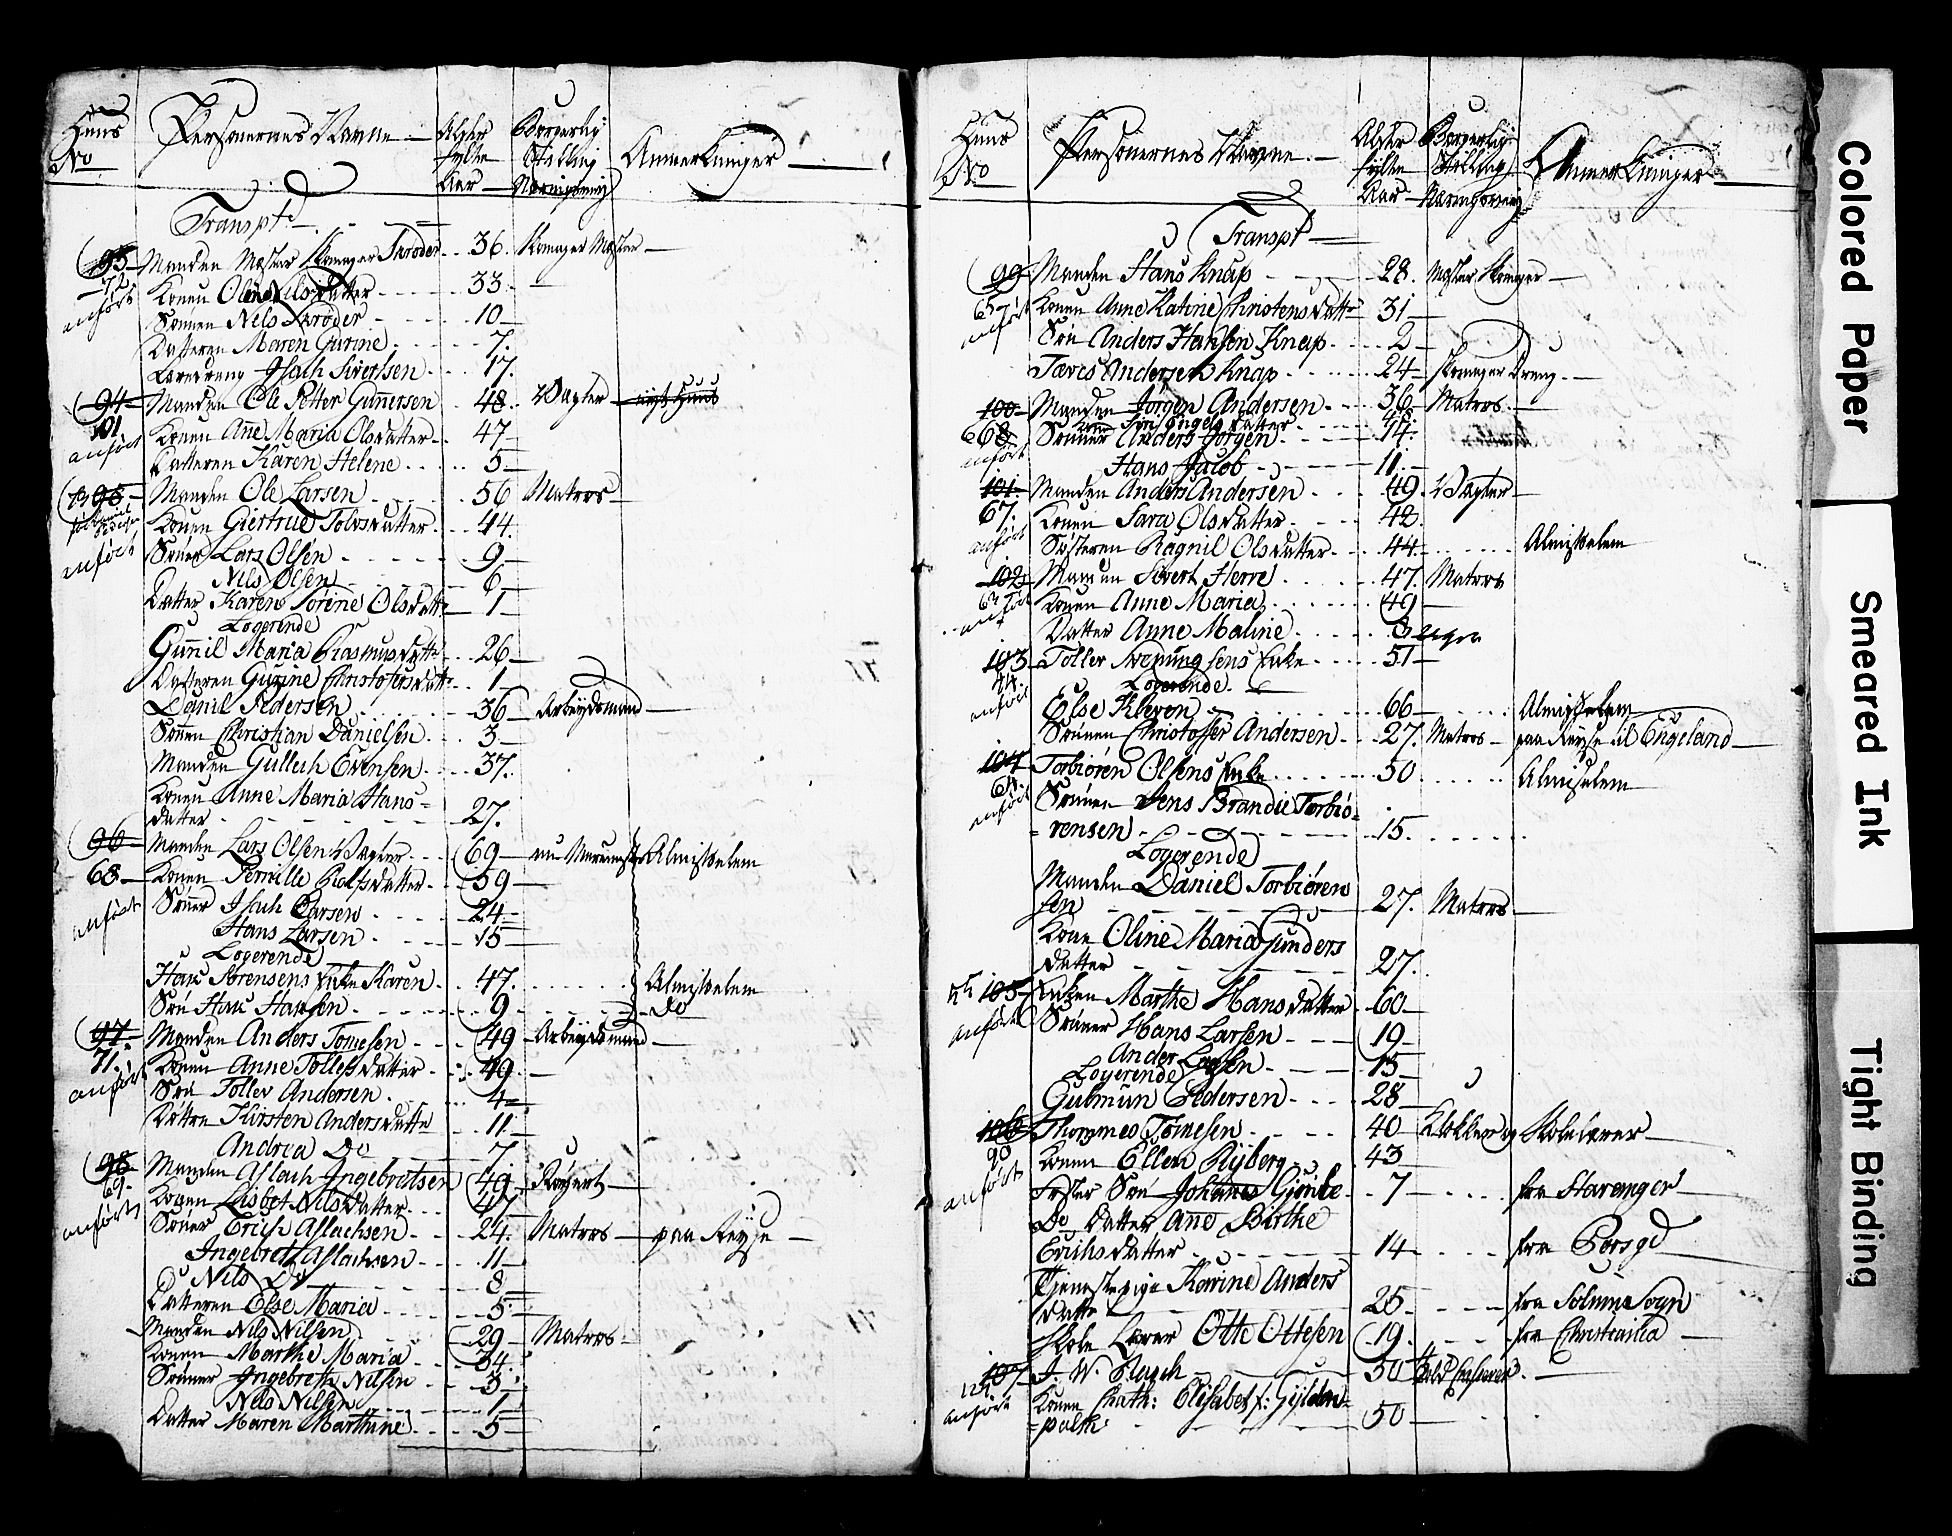 Huus No Personernes Navne Alder fylte Aar Borgerlig Stilling Næringsvey Anmerkninger
Transpt
93 Manden Mester Skomager Skrøder 36 Skomager Mester
anført Konen Oline Nilsdatter 33
Sønnen Nils Skrøder 10
Datteren Maren Gurine 7
Læredreng Isach Sivertsen 17
94 Manden Ole Petter Gunnersen 48 Vægter
101 anført Konen Anne Maria Olsdatter 47
Datteren Karen Helene 5
95 Manden Ole Larsen 56 Matros
Konen Giertrue Tolvsdatter 44
anført Sønner Lars Olsen 9
Nils Olsen 6
Datter Karen Sørine Olsdatter 1
Logerende
Gunnil Maria Rasmusdatter 26
Datteren Gurine Christofersdatter 1
Daniel Pedersen 36 Arbeydsmand
Sønnen Christian Danielsen 3
Manden Gulluh Evensen 37
Konen Anne Maria Hans-
datter 27
96 Manden Lars Olsen Vægter 69 Almisselem
68 Konen Pernille Rolfsdatter 59
anført Sønner Isach Larsen 24
Hans Larsen 15
Logerende
Hans Sørensens Enke Karen 47 Almisselem
Søn Hans Hansen 9 Do
97 Manden Anders Tomesen 49 Arbeydsmand
71 Konen Anne Tollefsdatter 49
anført Søn Tollev Andersen 4
Døttre Kirsten Andersdatter 11
Andrea Do 7
98 Manden Aslach Ingebretsen 49
69 Konen Lisbet Nilsdatter 47
anført Sønner Erich Aslachsen 24 Matros paa Reyse
Ingebret Aslachsen 11
Nils Do 8
Datteren Else Maria 5
Manden Nils Nilsen 29 Matros
Konen Marthe Maria 34
Sønner Ingebreth Nilsen 3
Nils Nilsen 1
Datter Maren Marthine 5
Huus No Personernes Navne Alder fylte Aar Borgerlig Stilling Næringsvey Anmerkninger
Transpt
99 Manden Hans Knap 28 Mester Skomager
anført Konen Anne Katrine Christensdatter 31
Søn Anders Hansen Knap 2
Tæves Andersen Knap 24 Skomager Dreng
100 Manden Jørgen Andersen 36 Matros
Konen Siri Engelsdatter 48
68 anført Sønner Anders Jørgen 14
Hans Jacob 11
101 Manden Anders Andersen 49 Vægter
67 Konen Sara Olsdatter 42
anført Søsteren Ragnil Olsdatter 44 Almisselem
102 Manden Sivert Herre 47 Matros
Konen Anne Maria 49
Datter Anne Maline 3
103 Toller Svenningsens Enke 51
Logerende
anført Else Kleven 66 Almisselem
Sønnen Christoffer Andersen 27 Matros paa Reyse til Engeland
104 Torbiøren Olsens Enke 50 Almisselem
64 anført Sønnen Jens Brandie Torbiø-
rensen 15
Logerende
Manden Daniel Torbiøren
sen 27 Matros
Kone Oline Maria Gunders
datter 27
105 Enken Marthe Hansdatter 60
anført Sønner Hans Larsen 19
Ander Larsen 15
Logerende
Gulmun Pedersen 28
106 Thommes Tomesen 40 Klokker og Skolelærer
90 Konen Ellen Ryberg 43
anført Foster Søn Johannes Gjønbe 7 fra Stavanger
Do Datter Anne Birthe
Erichsdatter 14 fra Porsgd
Tjenestepige Karine Anders
datter 25 fra Solums Sogn
Skole Lærer Otte Ottesen 19 fra Christiania
107 J. W. Plugh 50
anført Konen Chath: Elisabet f: Gylden-
palk 50
Colored Paper
Smeared Ink
Tight Binding